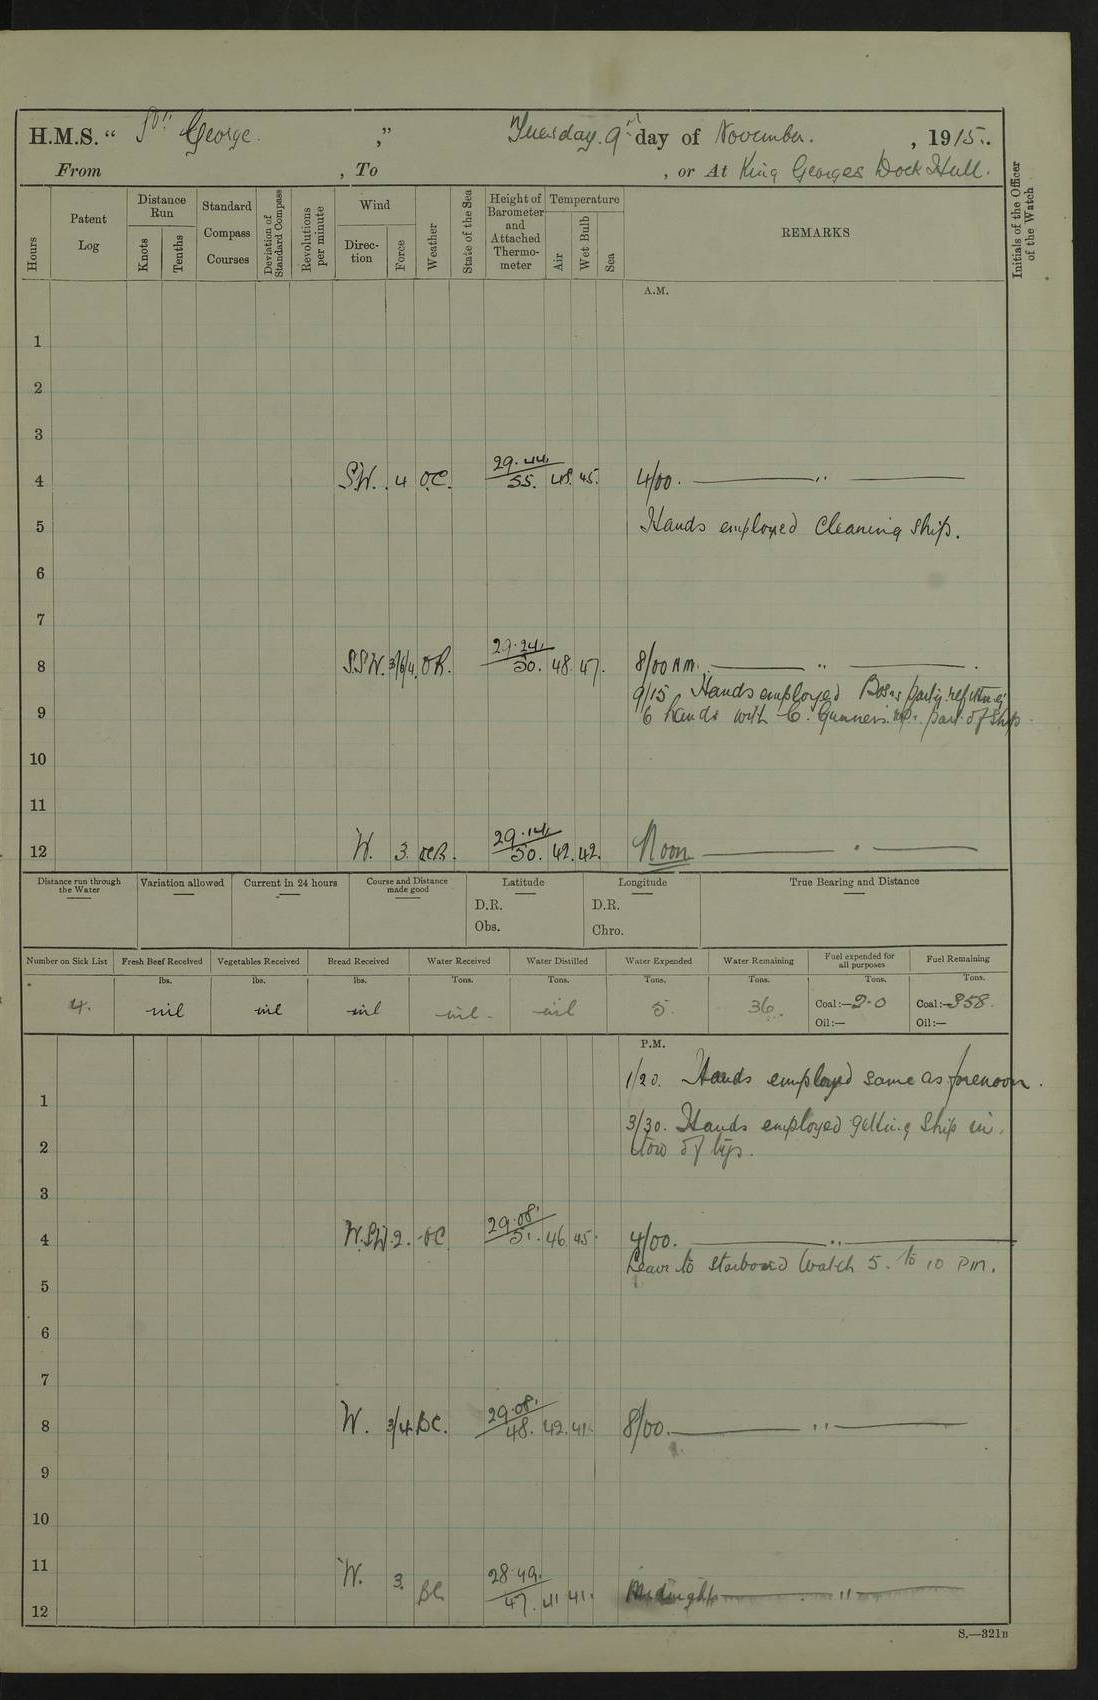 H.M.S. “ St. George. ” Tuesday. 9th day of November. , 1915.
From , To , or At King Georges Dock Hull.
Hours
Patent Log
Distance Run
Knots
Tenths
Standard Compass Courses
Deviation of Standard Compass
Revolutions per minute
Wind
Direc-tion
Force
Weather
State of the Sea
Height of Barometer and Attached Thermo-meter
Temperature
Air
Wet Bulb
Sea
REMARKS
Initials of the Officer of the Watch
A.M.
1
2
3
4 S.W. 4 O.C. 29.44. 55. 48. 45. 4/00. ——— " ———
5 Hands employed Cleaning ship.
6
7
8 SSW. 3/4. OR. 29.24. 50. 48. 47. 8/00 A.M. ——— " ———
9/15 Hands employed party refitting
9 6 hands with Gunners part of ship
10
11
12 W. 3. OCR. 29.14. 50. 42. 42. Noon ——— . ———
Distance run through the Water
Variation allowed
Current in 24 hours
Course and Distance made good
Latitude
Longitude
True Bearing and Distance
D.R. D.R.
Obs. Chro.
Number on Sick List Fresh Beef Received Vegetables Received Bread Received Water Received Water Distilled Water Expended Water Remaining Fuel expended for all purposes Fuel Remaining
lbs. lbs. lbs. Tons. Tons. Tons. Tons. Tons. Tons.
4. nil nil nil nil. nil 5. 36. Coal:—2.0 Coal:—358.
Oil:— Oil:—
P.M.
1/20. Hands employed same as forenoon.
1
3/30. Hands employed getting ship in
2 tow of tugs.
3
4 W.S.W. 2. OC 29.08. 51. 46. 45. 4/00. ——— " ———
Leave to starboard watch 5. to 10 PM.
5
6
7
8 W. 3/4. BC. 29.08. 48. 42. 41. 8/00. ——— " ———
9
10
11
W. 3. BC 28.49. 47. 41 41. Midnight ——— " ———
12
S.—321B